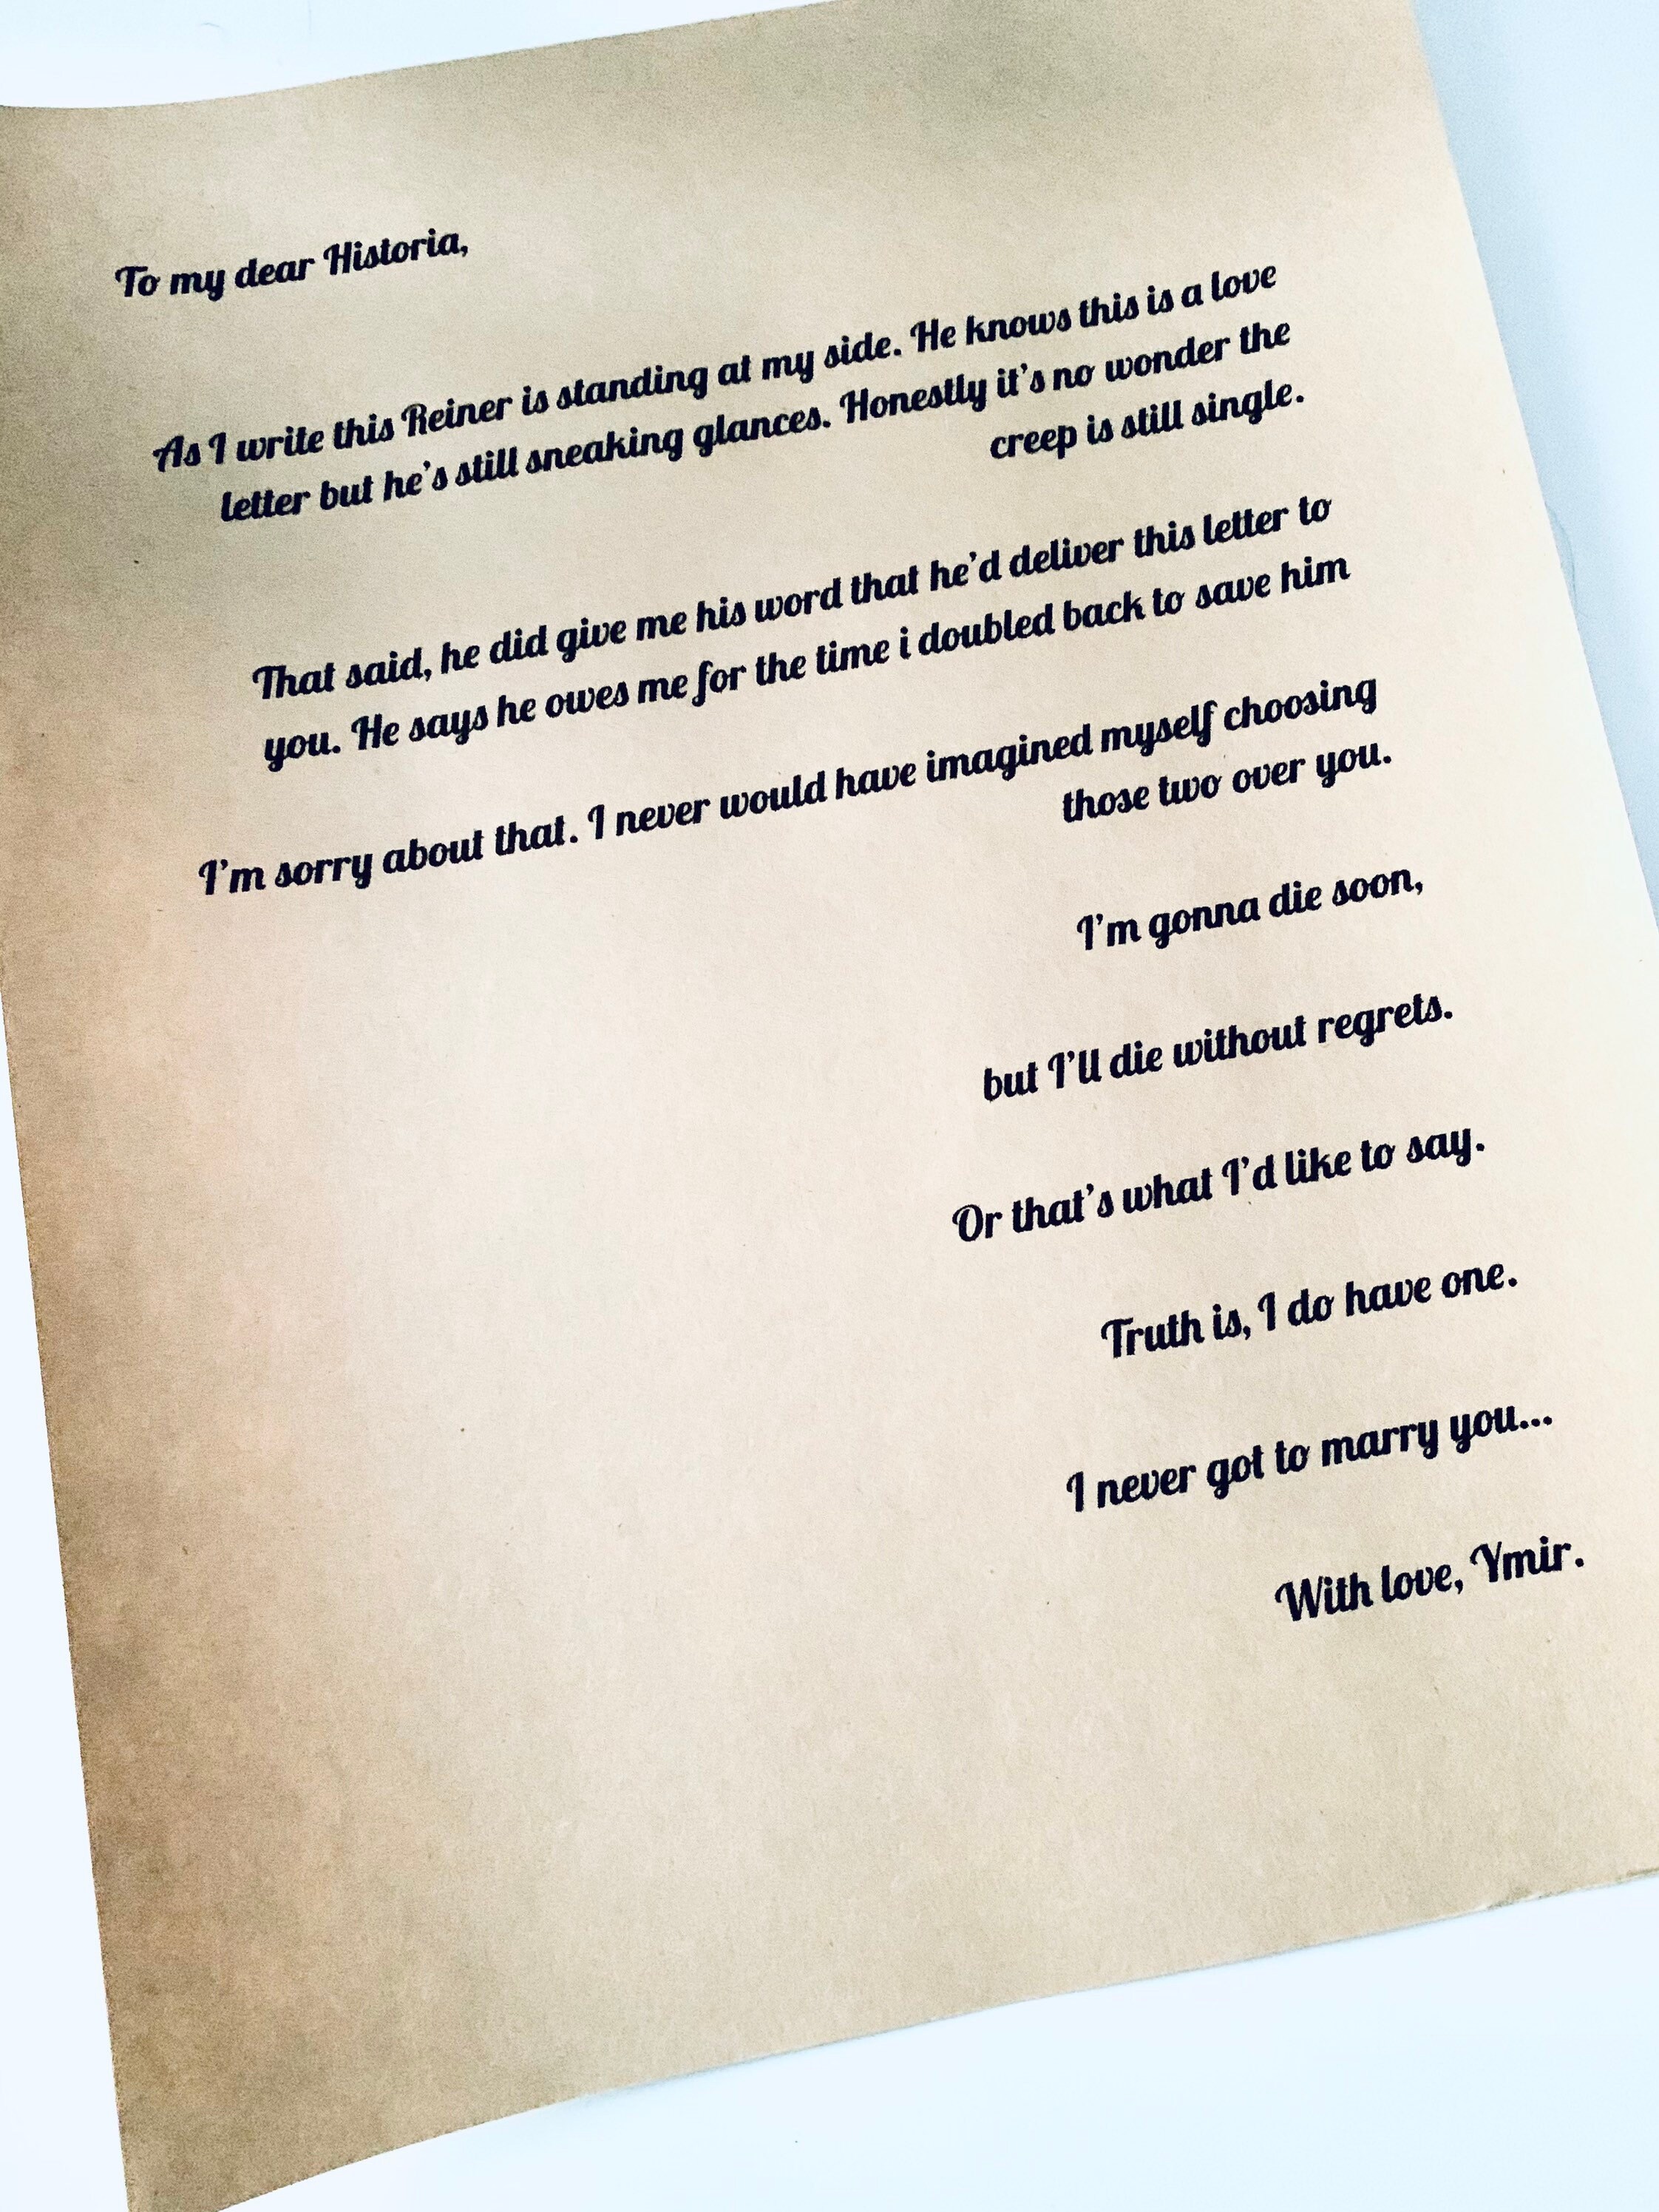 To my dear Historia,
As I write this Reiner is standing at my side. He knows this is a love
letter but he's still sneaking glances. Honestly it's no wonder the
creep is still single.
That said, he did give me his word that he'd deliver this letter to
you. He says he owes me for the time i doubled back to save him
I'm sorry about that. I never would have imagined myself choosing
those two over you.
I'm gonna die soon,
but I'll die without regrets.
Or that's what I'd like to say.
Truth is, I do have one.
I never got to marry you...
With love, Ymir.